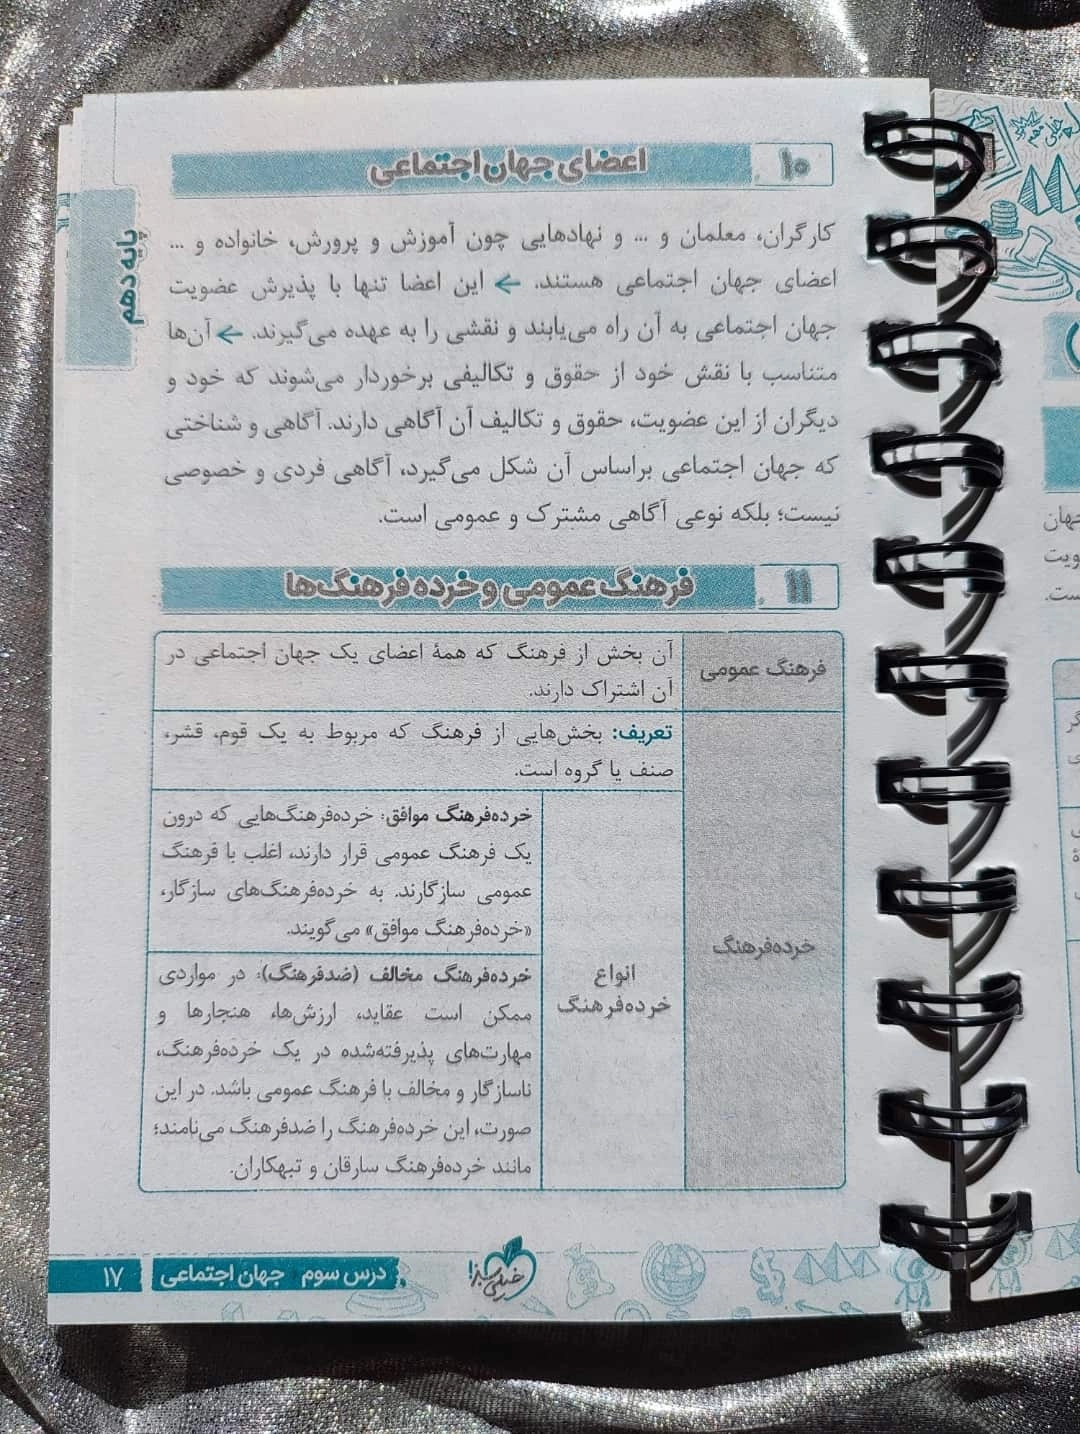 ۱۰ اعضای جهان اجتماعی
پایه دهم
کارگران، معلمان و ... و نهادهایی چون آموزش و پرورش، خانواده و ...
اعضای جهان اجتماعی هستند. ← این اعضا تنها با پذیرش عضویت
جهان اجتماعی به آن راه می‌یابند و نقشی را به عهده می‌گیرند. ← آن‌ها
متناسب با نقش خود از حقوق و تکالیفی برخوردار می‌شوند که خود و
دیگران از این عضویت، حقوق و تکالیف آن آگاهی دارند. آگاهی و شناختی
که جهان اجتماعی براساس آن شکل می‌گیرد، آگاهی فردی و خصوصی
نیست؛ بلکه نوعی آگاهی مشترک و عمومی است.
۱۱ فرهنگ عمومی و خرده فرهنگ‌ها
فرهنگ عمومی
آن بخش از فرهنگ که همهٔ اعضای یک جهان اجتماعی در
آن اشتراک دارند.
خرده‌فرهنگ
تعریف: بخش‌هایی از فرهنگ که مربوط به یک قوم، قشر،
صنف یا گروه است.
انواع
خرده‌فرهنگ
خرده‌فرهنگ موافق: خرده‌فرهنگ‌هایی که درون
یک فرهنگ عمومی قرار دارند، اغلب با فرهنگ
عمومی سازگارند. به خرده‌فرهنگ‌های سازگار،
«خرده‌فرهنگ موافق» می‌گویند.
خرده‌فرهنگ مخالف (ضدفرهنگ): در مواردی
ممکن است عقاید، ارزش‌ها، هنجارها و
مهارت‌های پذیرفته‌شده در یک خرده‌فرهنگ،
ناسازگار و مخالف با فرهنگ عمومی باشد. در این
صورت، این خرده‌فرهنگ را ضدفرهنگ می‌نامند؛
مانند خرده‌فرهنگ سارقان و تبهکاران.
خیلی سبز!
درس سوم جهان اجتماعی
۱۷
جهان
ویت
ست.